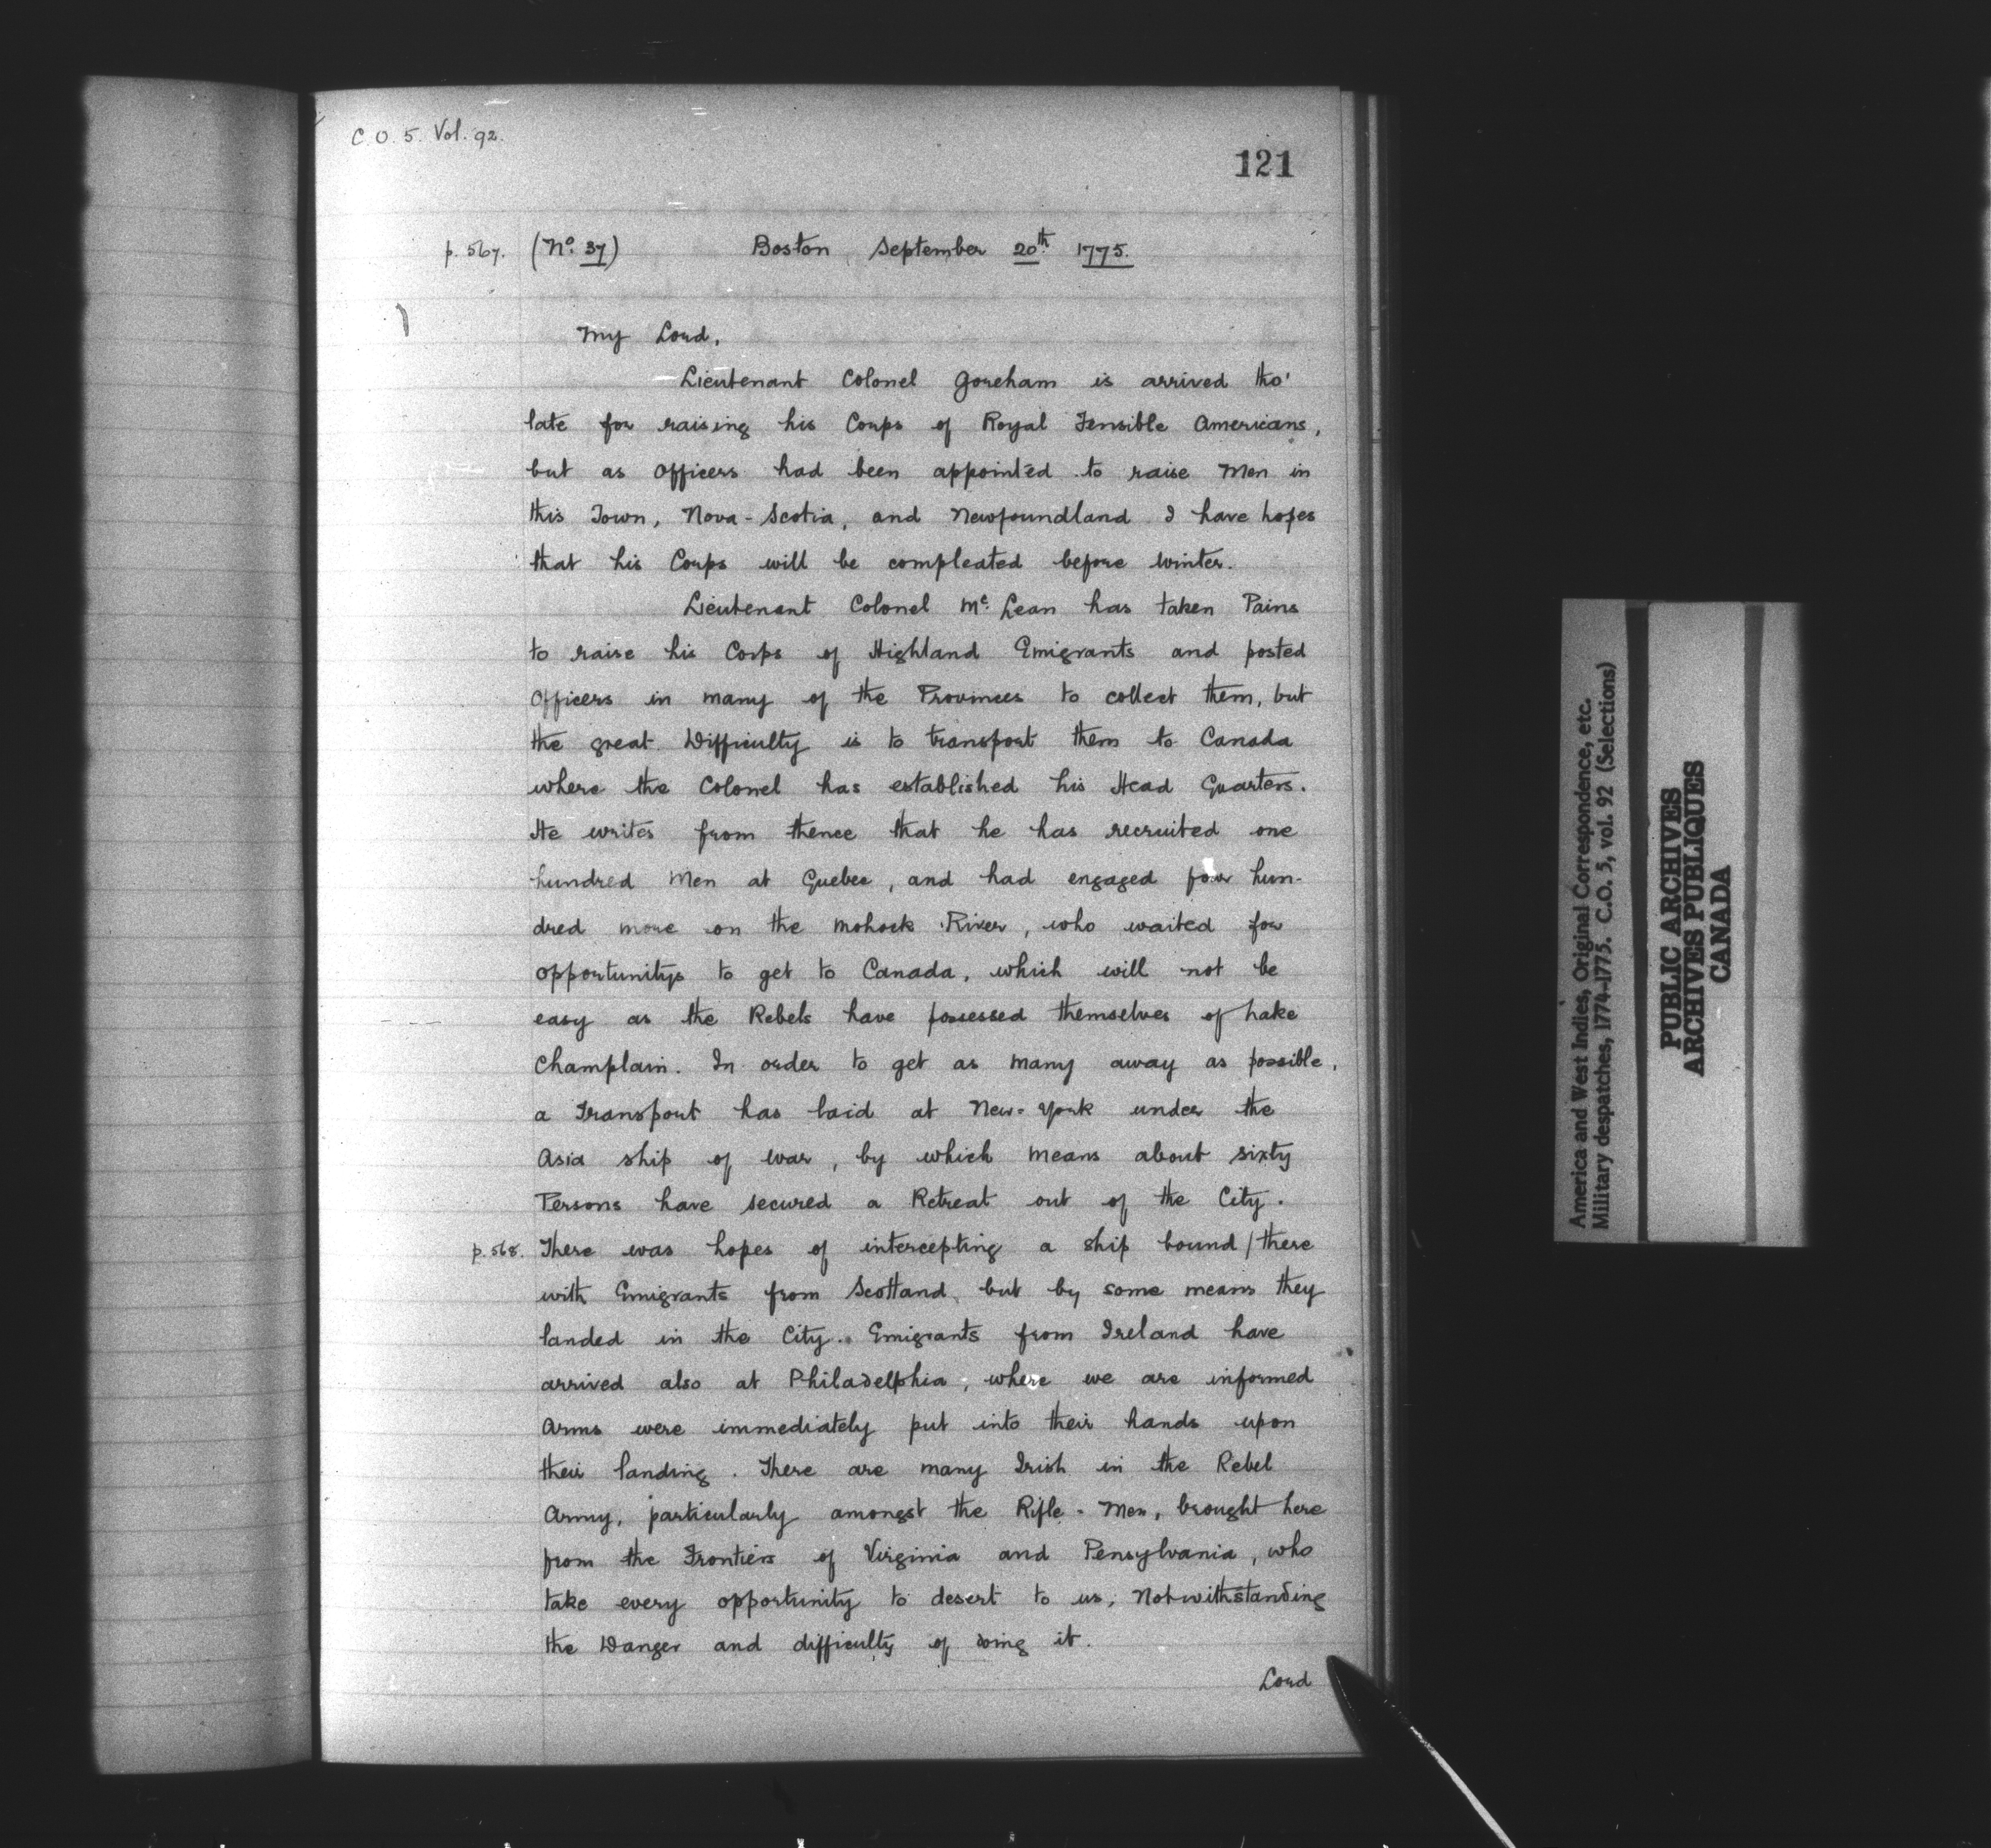 C.O. 5. Vol. 92.
121
p. 567. (No. 37) Boston, September 20th. 1775.
My Lord,
Lieutenant Colonel Goreham is arrived tho'
late for raising his Corps of Royal Fensible Americans,
but as Officers had been appointed to raise Men in
this Town, Nova-Scotia, and Newfoundland I have hopes
that his Corps will be compleated before Winter.
Lieutenant Colonel Mc. Lean has taken Pains
to raise his Corps of Highland Emigrants and posted
Officers in many of the Provinces to collect them, but
the great Difficulty is to transport them to Canada
where the Colonel has established his Head Quarters.
He writes from thence that he has recruited one
hundred Men at Quebec, and had engaged four hun-
dred more on the Mohock River, who waited for
opportunitys to get to Canada, which will not be
easy as the Rebels have possessed themselves of Lake
Champlain. In order to get as many away as possible,
a Transport has laid at New-York under the
Asia ship of war, by which means about sixty
Persons have secured a Retreat out of the City.
p. 568. There was hopes of intercepting a ship bound / there
with Emigrants from Scotland, but by some means they
landed in the City. Emigrants from Ireland have
arrived also at Philadelphia, where we are informed
Arms were immediately put into their hands upon
their landing. There are many Irish in the Rebel
Army, particularly amongst the Rifle-Men, brought here
from the Frontiers of Virginia and Pensylvania, who
take every opportunity to desert to us, Notwithstanding
the Danger and difficulty of doing it.
Lord
America and West Indies, Original Correspondence, etc.
Military despatches, 1774-1775. C.O. 5, vol. 92 (Selections)
PUBLIC ARCHIVES
ARCHIVES PUBLIQUES
CANADA